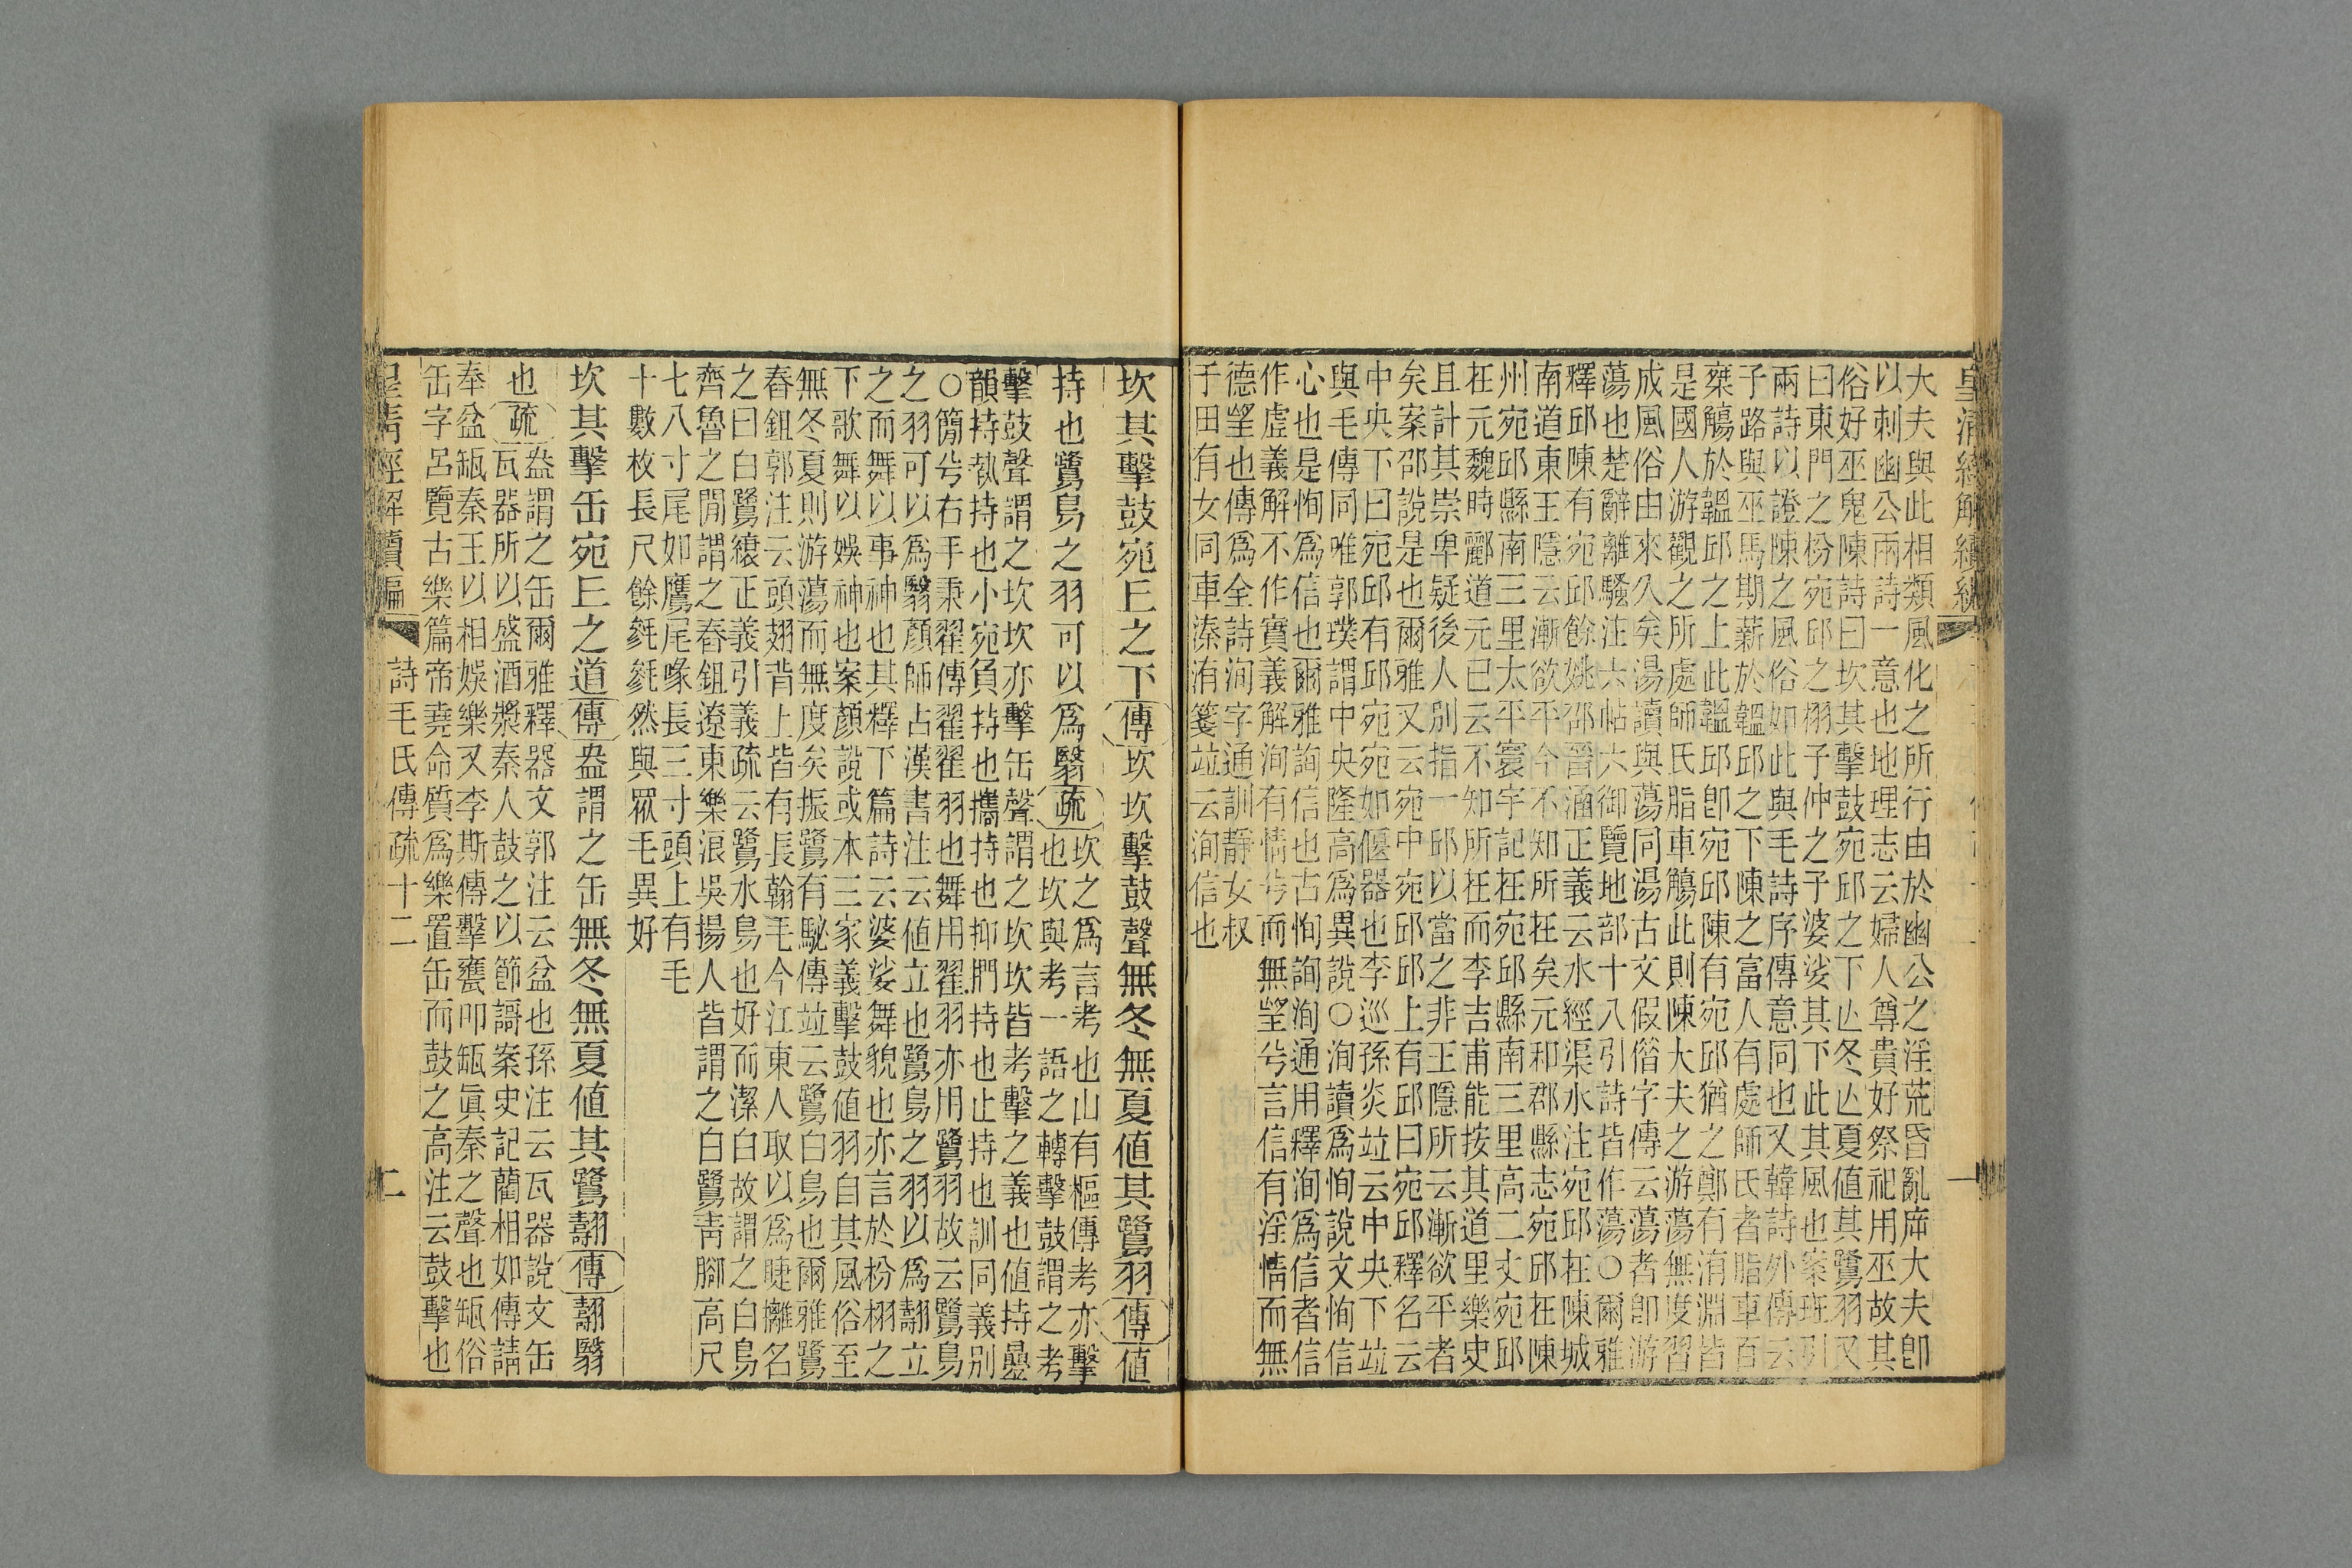 大夫與此相類風化之所行由於幽公之淫荒昏亂席大夫卽
以刺幽公兩詩一意也地理志云婦人尊貴好祭祀用巫故其
俗好巫鬼陳詩曰坎其擊鼓宛邱之下亾冬亾夏値其鷺羽又
曰東門之枌宛邱之栩子仲之子婆娑其下此其風也案班引
兩詩以證陳之風俗如此與毛詩序傳意同也又韓詩外傳云
子路與巫馬期薪於韞邱之下陳之富人有處師氏者脂車百
椉觴於韞邱之上此韞邱卽宛邱陳有宛邱猶之鄭有洧淵皆
是國人游觀之所處師氏脂車觴此則陳大夫之游蕩無度習
成風俗由來久矣湯讀與蕩同湯古文假偺字傳云蕩者卽游
蕩也楚辭離騷注六帖六御覽地部十八引詩皆作蕩○爾雅
釋邱陳有宛邱餘姚邵晉涵正義云水經渠水注宛邱在陳城
南道東王隱云漸欲平今不知所在矣元和郡縣志宛邱在陳
州宛邱縣南三里太平寰宇記在宛邱縣南三里高二丈宛邱
在元魏時酈道元已云不知所在而李吉甫能按其道里樂史
且計其崇卑疑後人別指一邱以當之非王隱所云漸欲平者
矣案邵說是也爾雅又云宛中宛邱邱上有邱曰宛邱釋名云
中央下曰宛邱有邱宛宛如偃器也李巡孫炎竝云中央下竝
與毛傳同唯郭璞謂中央隆高爲異說○洵讀爲恂說文恂信
心也是恂爲信也爾雅詢信也古恂詢洵通用釋洵爲信者信
作虛義解不作實義解洵有情兮而無望兮言信有淫情而無
德望也傳爲全詩洵字通訓靜女叔
于田有女同車溱洧箋竝云洵信也
坎其擊鼓宛㐀之下傳坎坎擊鼓聲無冬無夏値其鷺羽傳値
持也鷺鳥之羽可以爲翳疏坎之爲言考也山有樞傳考亦擊
也坎與考一語之轉擊鼓謂之考
擊鼓聲謂之坎坎亦擊缶聲謂之坎坎皆考擊之義也値持曡
韻持執持也小宛負持也攜持也抑捫持也止持也訓同義別
○簡兮右手秉翟傳翟翟羽也舞用翟羽亦用鷺羽故云鷺鳥
之羽可以爲翳顏師古漢書注云値立也鷺鳥之羽以爲翿立
之而舞以事神也其釋下篇詩云婆娑舞貌也亦言於枌栩之
下歌舞以娛神也案顏說或本三家義擊鼓値羽自其風俗至
無冬夏則游蕩而無度矣振鷺有駜傳竝云鷺白鳥也爾雅鷺
舂鉏郭注云頭翅背上皆有長翰毛今江東人取以爲睫㒧名
之曰白鷺縗正義引義疏云鷺水鳥也好而潔白故謂之白鳥
齊魯之閒謂之舂鉏遼東樂浪吳揚人皆謂之白鷺靑腳高尺
七八寸尾如鷹尾喙長三寸頭上有毛
十數枚長尺餘毿毿然與眾毛異好
坎其擊缶宛㐀之道傳盎謂之缶無冬無夏値其鷺翿傳翿翳
也疏盎謂之缶爾雅釋器文郭注云盆也孫注云瓦器說文缶
瓦器所以盛酒漿秦人鼓之以節謌案史記藺相如傳請
奉盆缻秦王以相娛樂又李斯傳擊甕叩缻眞秦之聲也缻俗
缶字呂覽古樂篇帝堯命質爲樂置缶而鼓之高注云鼓擊也
詩毛氏傳疏十二
二